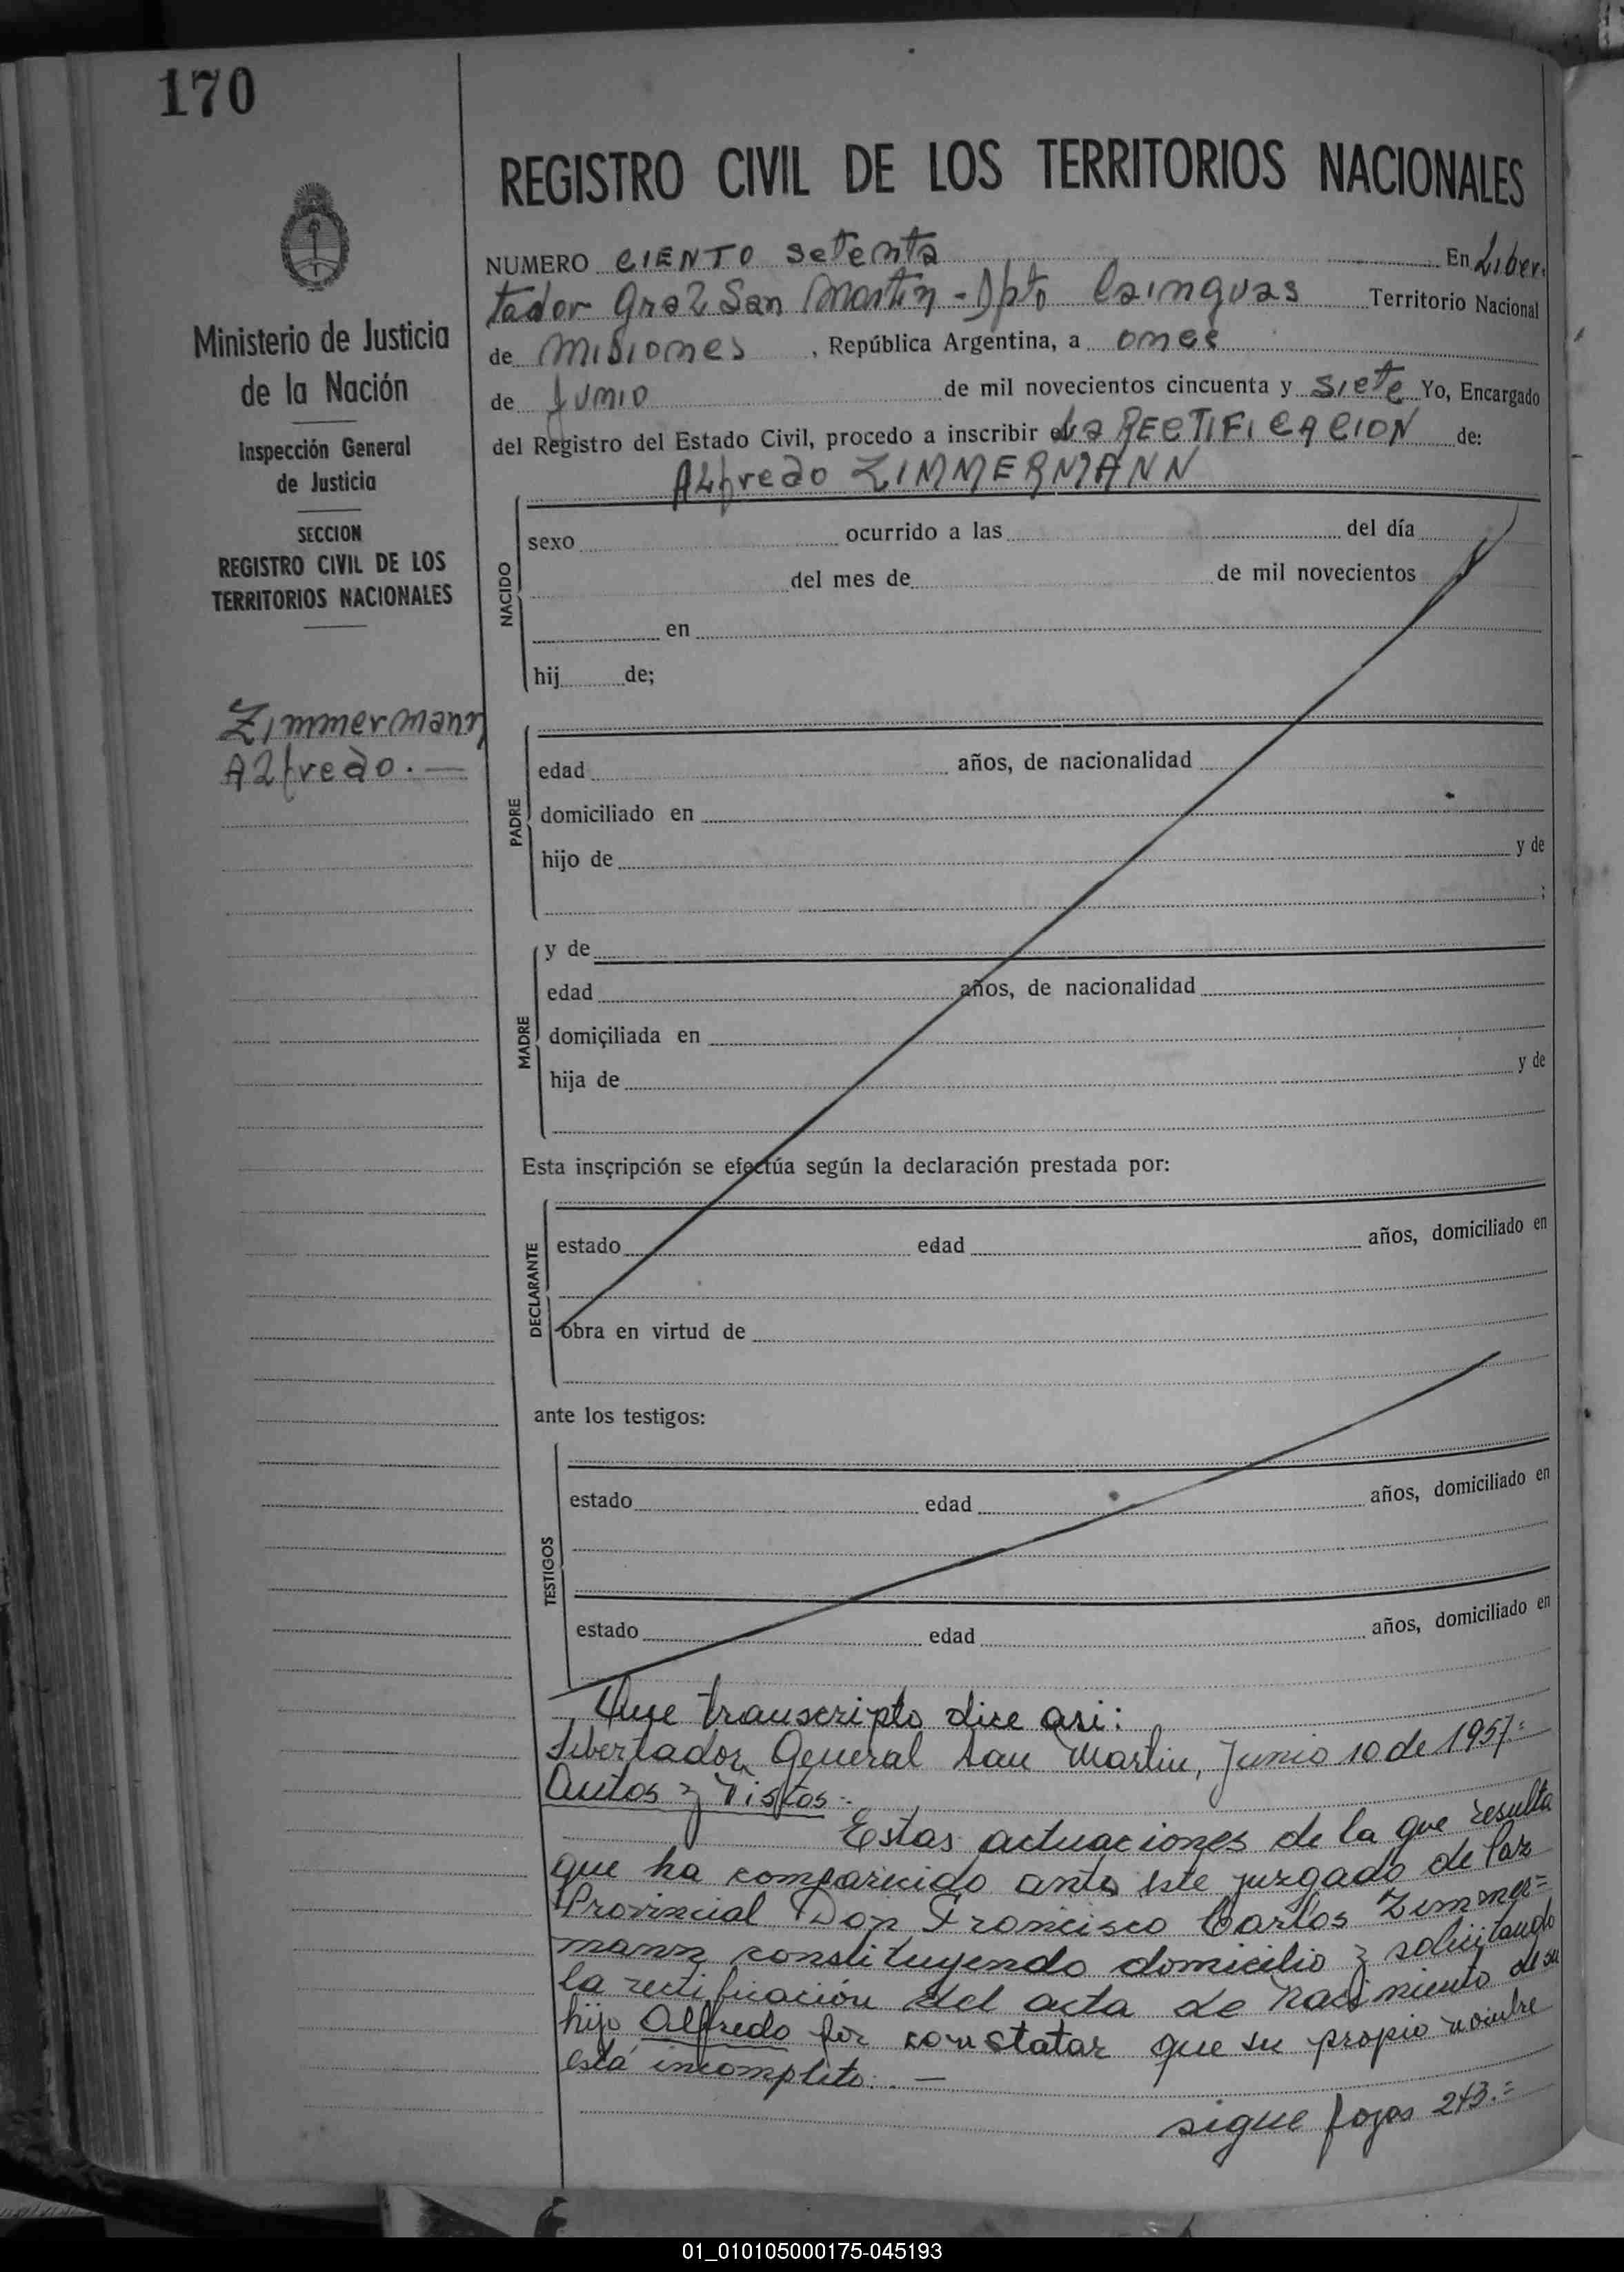 170
REGISTRO CIVIL DE LOS TERRITORIOS NACIONALES
Ministerio de Justicia
de la Nación
Inspección General
de Justicia
SECCION
REGISTRO CIVIL DE LOS
TERRITORIOS NACIONALES
Zimmermann
Alfredo.—
NUMERO CIENTO setenta En Liber.
tador Gral San Martin - Dpto Cainguas Territorio Nacional
de Misiones, República Argentina, a once
de Junio de mil novecientos cincuenta y siete Yo, Encargado
del Registro del Estado Civil, procedo a inscribir la RECTIFICACION de:
Alfredo ZIMMERMANN
NACIDO
sexo ocurrido a las del día
del mes de de mil novecientos
en
hij de;
PADRE
edad años, de nacionalidad
domiciliado en
hijo de y de
;
MADRE
y de
edad años, de nacionalidad
domiciliada en
hija de y de
Esta inscripción se efectúa según la declaración prestada por:
DECLARANTE
estado edad años, domiciliado en
obra en virtud de
ante los testigos:
TESTIGOS
estado edad años, domiciliado en
estado edad años, domiciliado en
Que transcripto dice asi:
Libertador General San Martin, Junio 10 de 1957=
Autos y Vistos:-
Estas actuaciones de la que resulta
que ha comparecido ante este juzgado de Paz
Provincial Don Francisco Carlos Zimmer=
mann constituyendo domicilio y solicitando
la rectificación del acta de Nacimiento de su
hijo Alfredo por constatar que su propio nombre
está incompleto.. —
sigue fojas 243.=
01_010105000175-045193